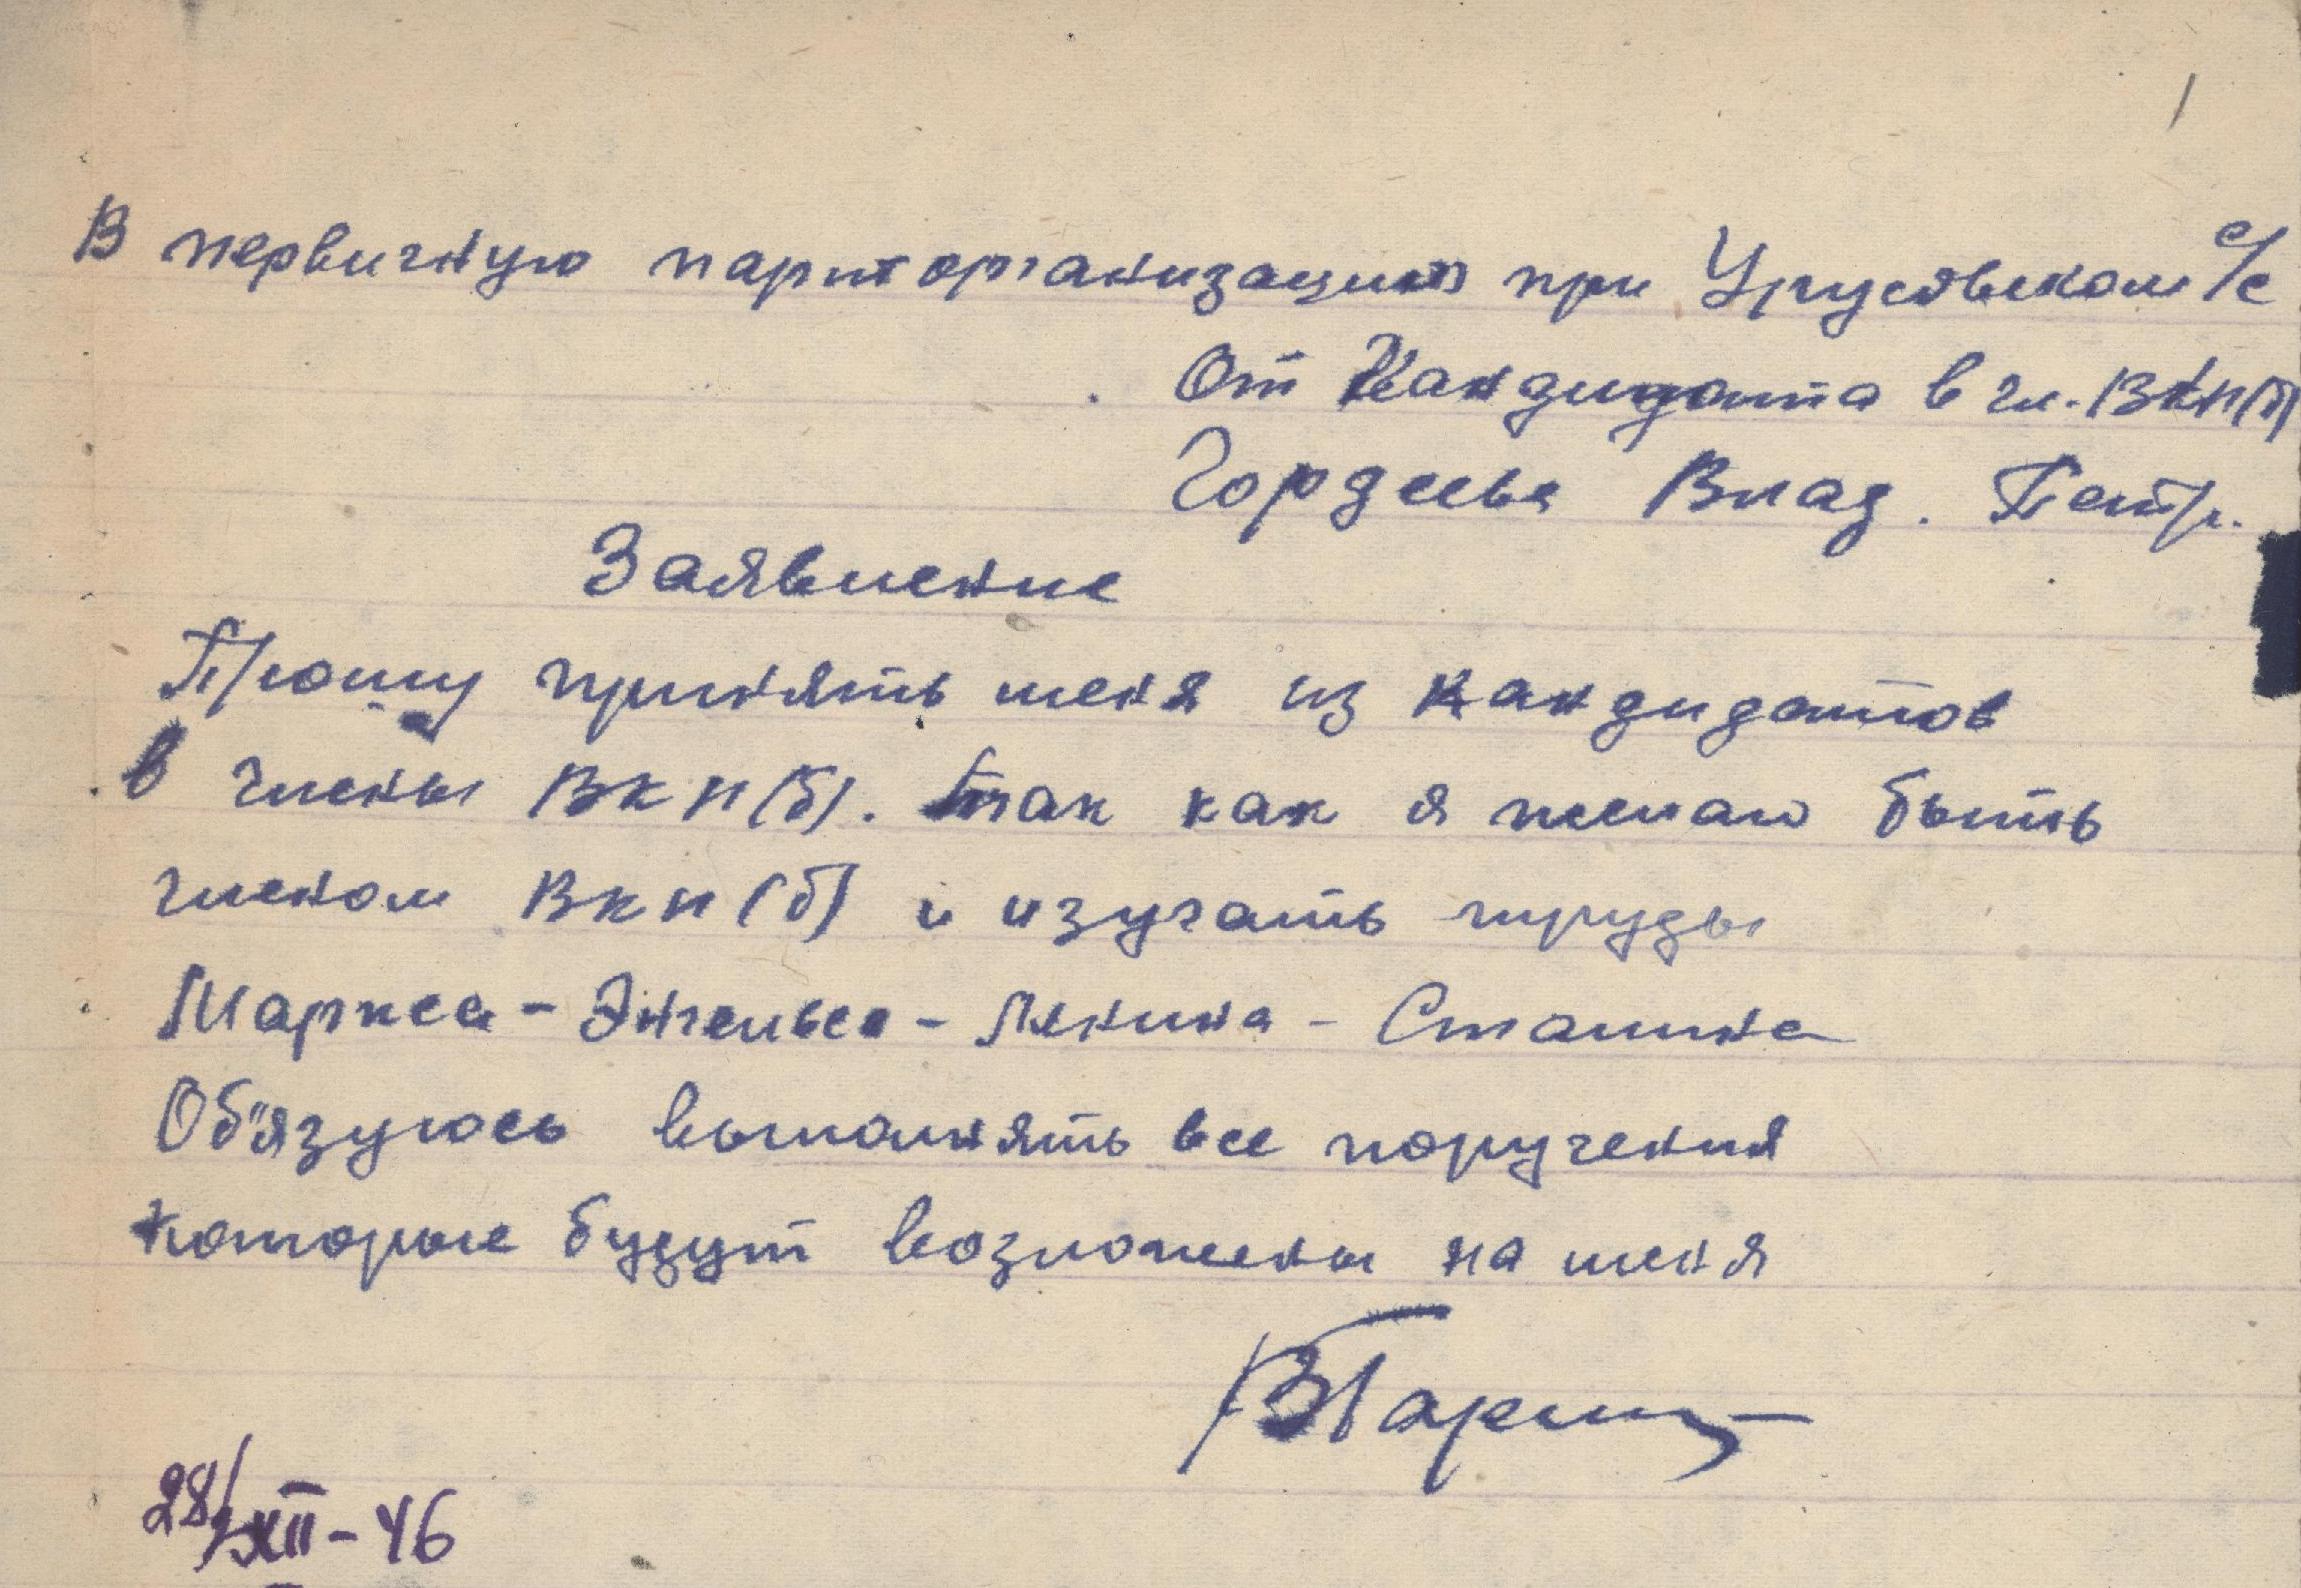 1
В первичную парторганизацию при Урусовском с/с
От Кандидата в чл. ВКП(б)
Гордеева Влад. Петр.
Заявление
Прошу принять меня из кандидатов
в члены ВКП(б). так как я желаю быть
членом ВКП(б) и изучать труды
Маркса - Энгельса - Ленина - Сталина
Об"язуюсь выполнять все поручения
которые будут возложены на меня
28/XII-46